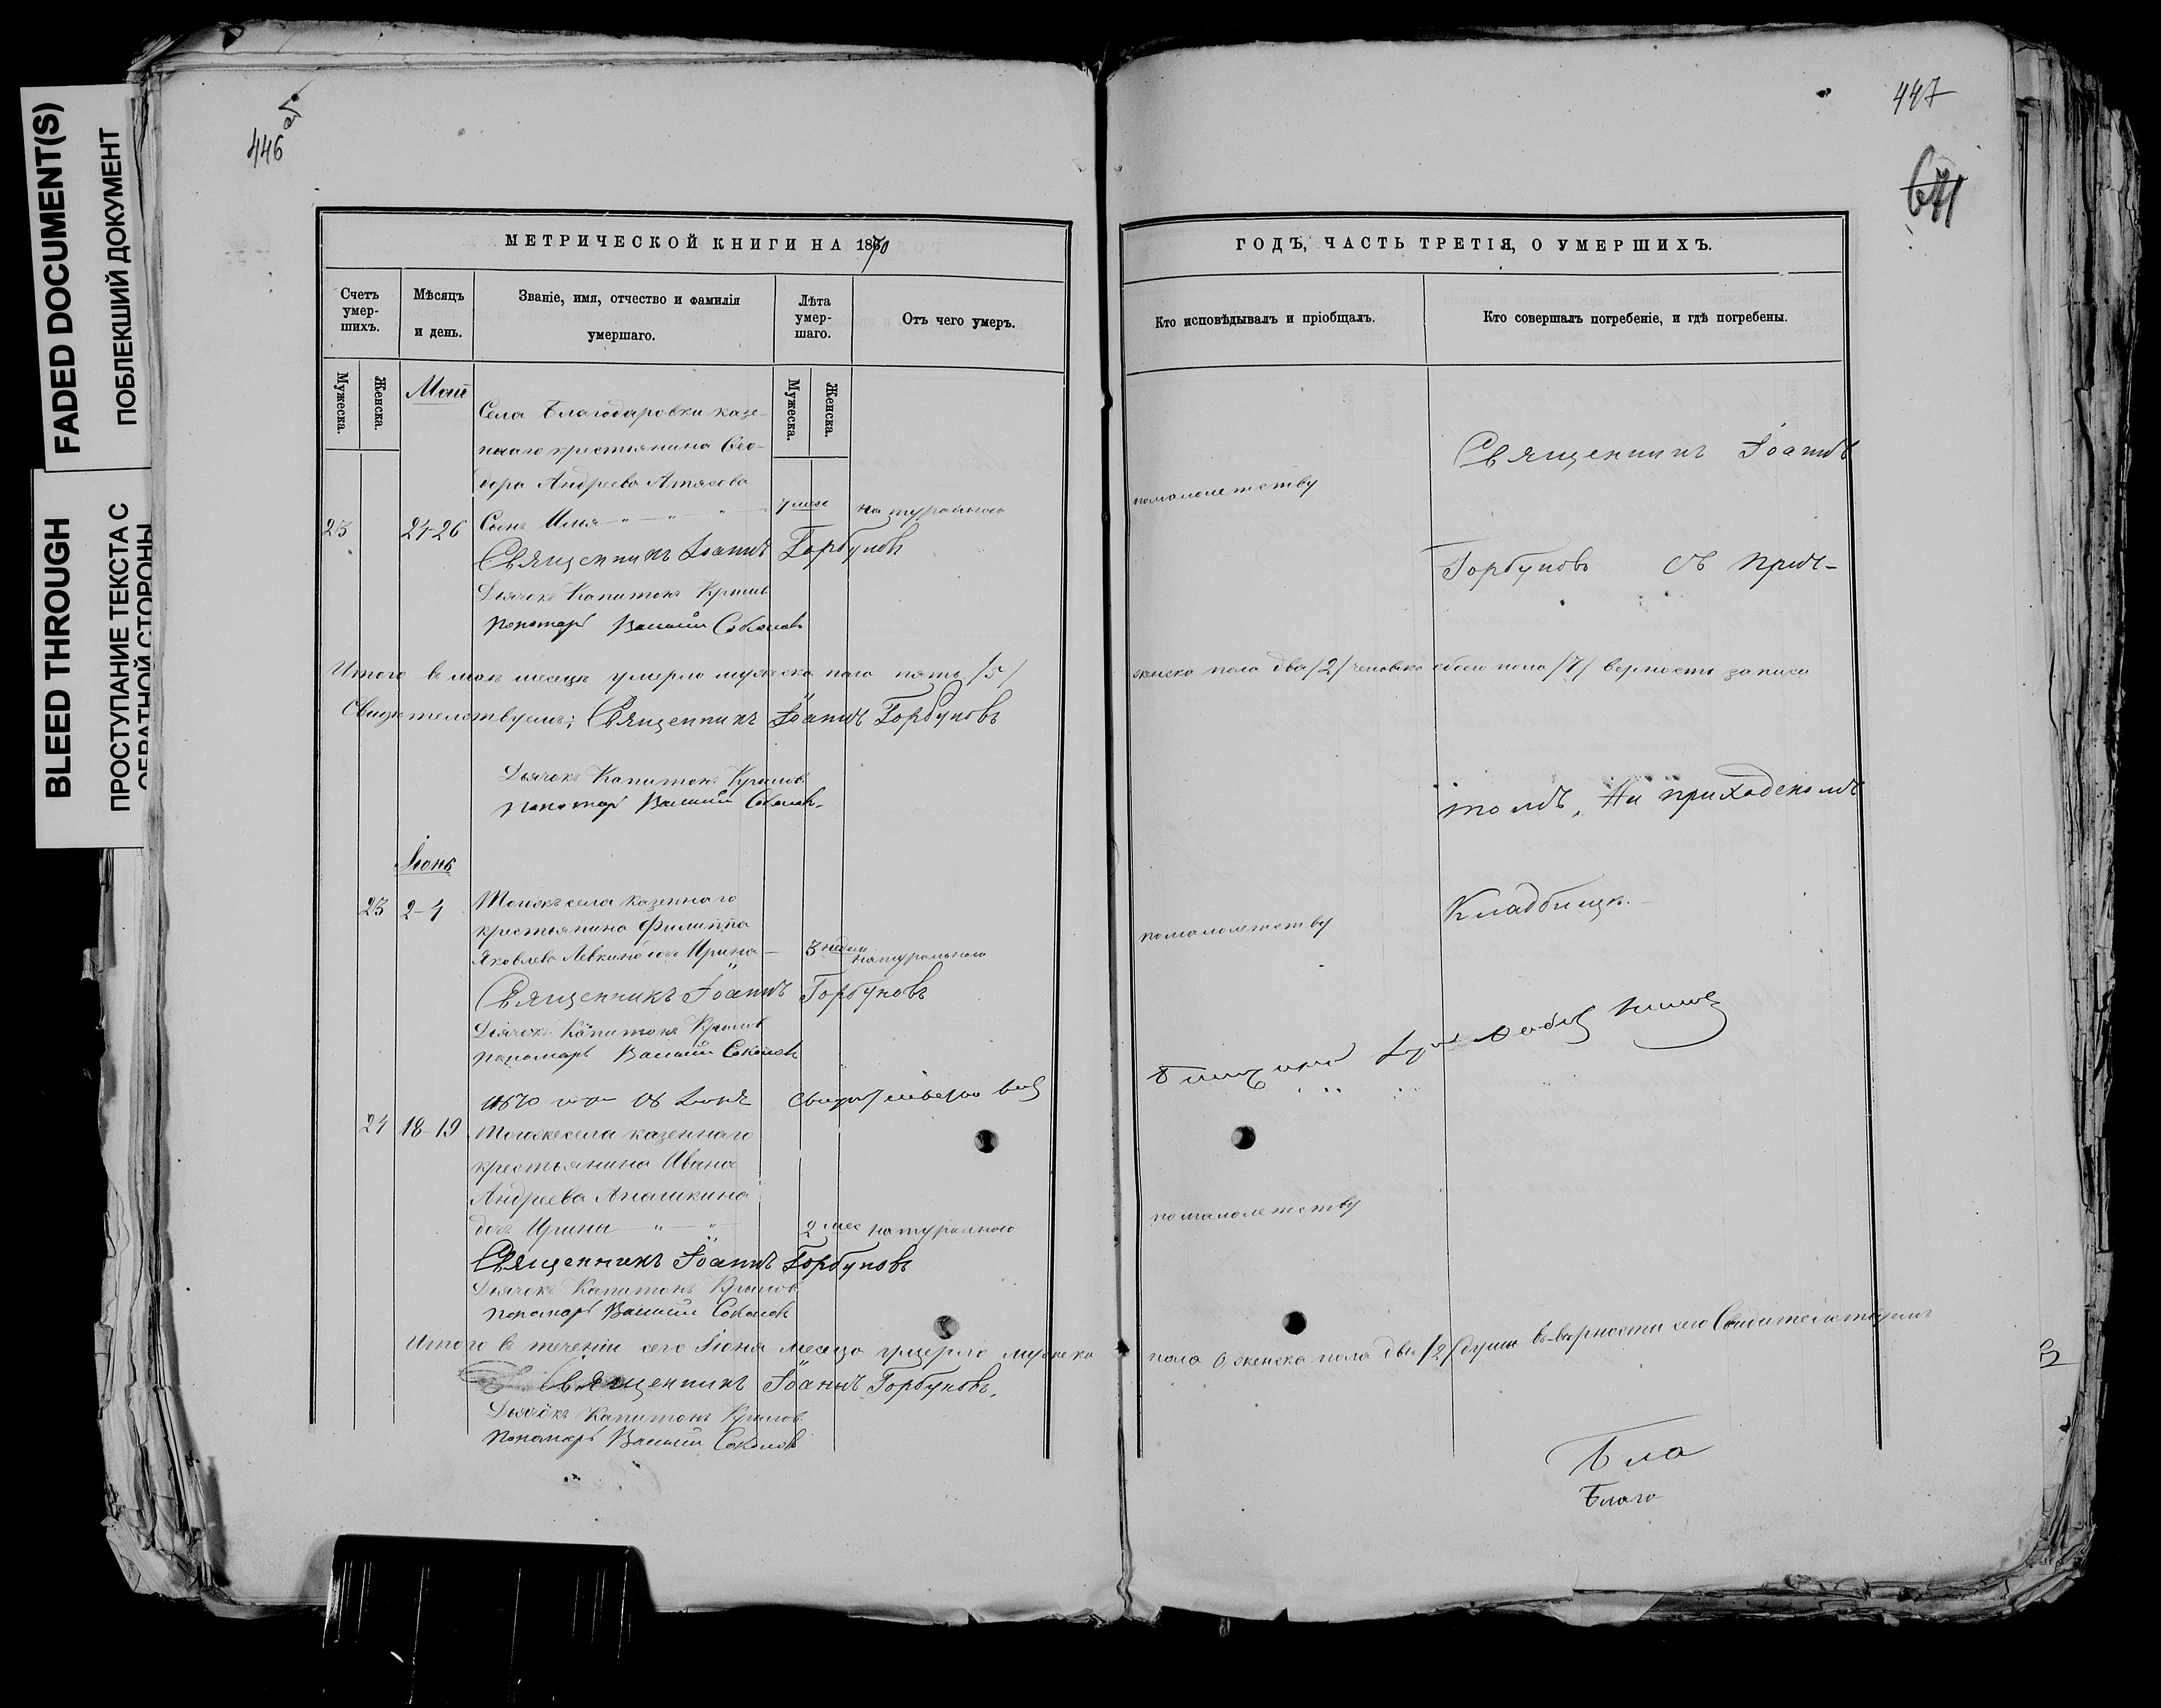 FADED DOCUMENT(S)
ПОБЛЕКШИЙ ДОКУМЕНТ
BLEED THROUGH
ПРОСТУПАНИЕ ТЕКСТА С
ОБРАТНОЙ СТОРОНЫ
446 об
МЕТРИЧЕСКОЙ КНИГИ НА 1870
Счетъ умер-шихъ.
Мѣсяцъ и день.
Званіе, имя, отчество и фамилія умершаго.
Лѣта умер-шаго.
Отъ чего умеръ.
Мужеска.
Женска.
Мужеска.
Женска.
Май
Села Благодаровки казе-
ннаго крестьянина Ѳео-
дора Андреева Атясова
23 24-26 Сынъ Илья натуральною
Священникъ Іоаннъ Горбуновъ
Дьячокъ Капитонъ Крыловъ
Пономарь Василий Соколовъ
Итого в маѣ месяцѣ умерло мужеска пола пять /5/
Свидетелствуемъ: Священникъ Іоаннъ Горбуновъ
Дьячокъ Капитонъ Крыловъ
Пономарь Василий Соколовъ
Іюнь
23 2-4 Тогожъ села казеннаго
крестьянина Филиппа
Яковлева Левкина дочь Ирина 3 недели натуральною
Священникъ Іоаннъ Горбуновъ
Дьячокъ Капитонъ Крыловъ
Пономарь Василий Соколовъ
1870
24 18-19 Тогоже села казеннаго
крестьянина Ивана
Андреева Анашкина
дочь Ирина 2 мес натуралною
Священникъ Іоаннъ Горбуновъ
Дьячокъ Капитонъ Крыловъ
Пономарь Василий Соколовъ
Итого в течении сего Іюня месяца умерло мужеска
Священникъ Іоаннъ Горбуновъ.
Дьячокъ Капитонъ Крылов
Пономарь Василий Соколовъ
447
671
ГОДЪ, ЧАСТЬ ТРЕТІЯ, О УМЕРШИХЪ.
Кто исповѣдывалъ и пріобщалъ.
Кто совершалъ погребеніе, и гдѣ погребены.
Священникъ Іоаннъ
помалолетству
Горбуновъ съ прич-
женска пола два /2/ человека обоего пола /7/ верность записи
томъ, На приходскомъ
Кладбищѣ.
помалолетству
помалолетству
пола 0, женска пола два /2/ души въ верности сего Свидителствуемъ
Бла
Благо